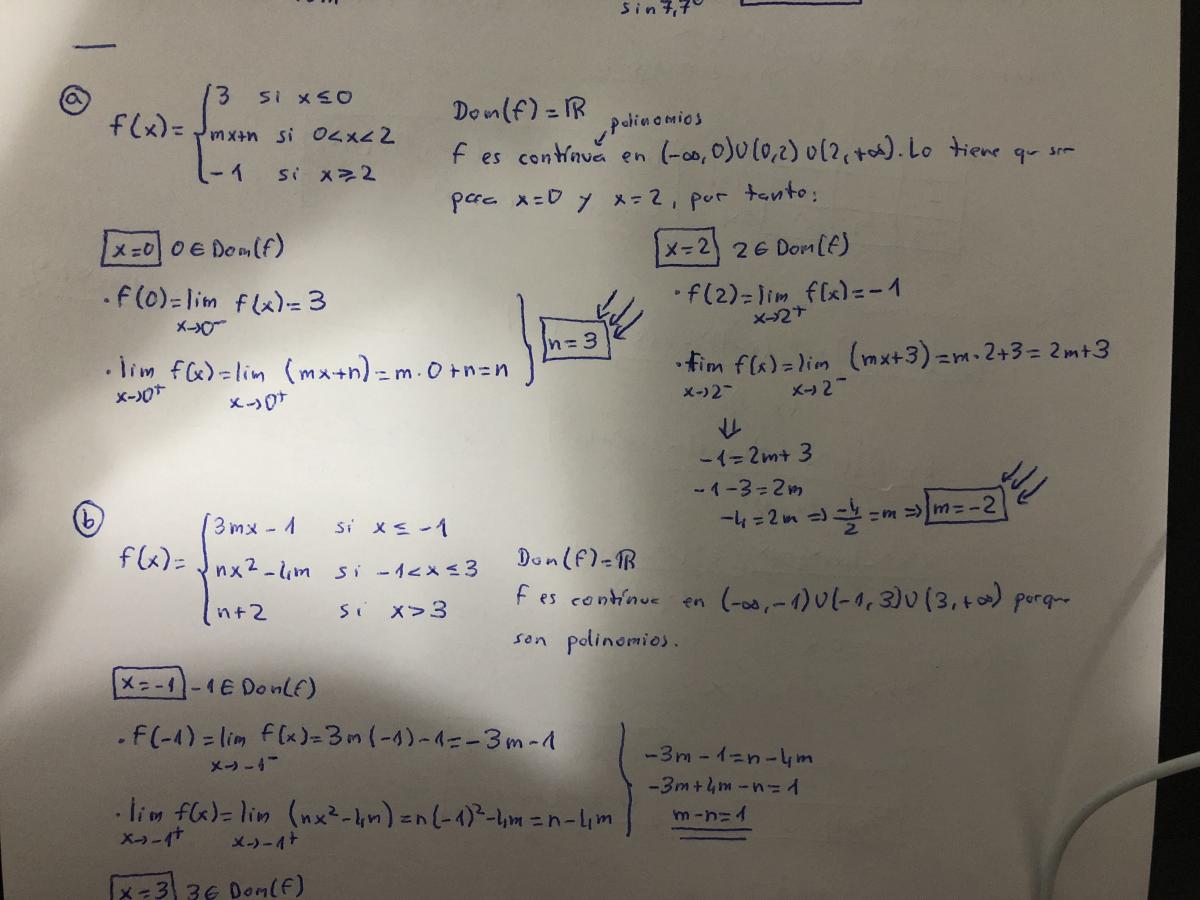 sin 7,7°
ⓐ f(x) = { 3 si x ≤ 0
mx+n si 0<x<2
-1 si x ≥ 2
Dom(f) = ℝ
polinomios
f es contínua en (-∞,0)∪(0,2)∪(2,+∞). Lo tiene que ser
para x=0 y x=2, por tanto:
x=0 0 ∈ Dom(f)
· f(0) = lim f(x) = 3
x→0⁻
· lim f(x) = lim (mx+n) = m·0+n = n
x→0⁺ x→0⁺
n = 3
x=2 2 ∈ Dom(f)
· f(2) = lim f(x) = -1
x→2⁺
· lim f(x) = lim (mx+3) = m·2+3 = 2m+3
x→2⁻ x→2⁻
⇓
-1 = 2m+3
-1-3 = 2m
-4 = 2m ⇒ -4/2 = m ⇒ m = -2
ⓑ f(x) = { 3mx-1 si x ≤ -1
nx²-4m si -1<x≤3
n+2 si x>3
Dom(f) = ℝ
f es contínua en (-∞,-1)∪(-1,3)∪(3,+∞) porque
son polinomios.
x=-1 -1 ∈ Dom(f)
· f(-1) = lim f(x) = 3m(-1)-1 = -3m-1
x→-1⁻
· lim f(x) = lim (nx²-4m) = n(-1)²-4m = n-4m
x→-1⁺ x→-1⁺
-3m-1 = n-4m
-3m+4m-n = 1
m-n = 1
x=3 3 ∈ Dom(f)